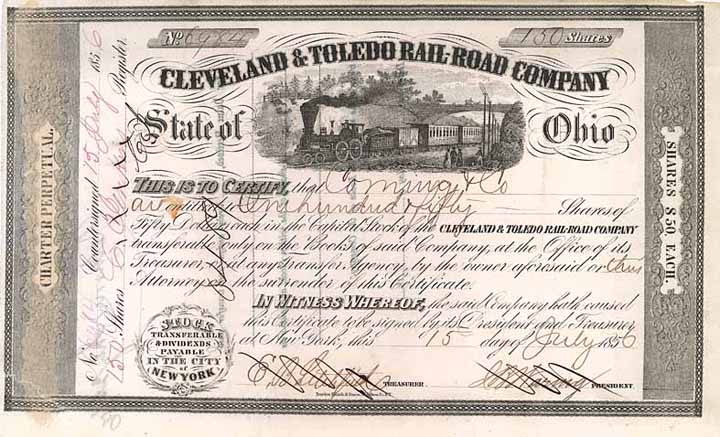 No. 6984
150 Shares
CLEVELAND & TOLEDO RAIL-ROAD COMPANY
State of Ohio
THIS IS TO CERTIFY, that Corning & Co
are entitled to One hundred & fifty Shares of
Fifty Dollars each in the Capital Stock of the CLEVELAND & TOLEDO RAIL-ROAD COMPANY
transferable only on the Books of said Company, at the Office of its
Treasurer, or at any Transfer Agency, by the owner aforesaid or their
Attorney on the surrender of this Certificate.
IN WITNESS WHEREOF, the said Company hath caused
this Certificate to be signed by its President and Treasurer
at New York, this 15 day of July 1856
TREASURER.
PRESIDENT.
STOCK
TRANSFERABLE
& DIVIDENDS
PAYABLE
IN THE CITY
of
NEW YORK
CHARTER PERPETUAL.
SHARES $50 EACH.
Countersigned 15 July 1856
Register
No.
150 Shares